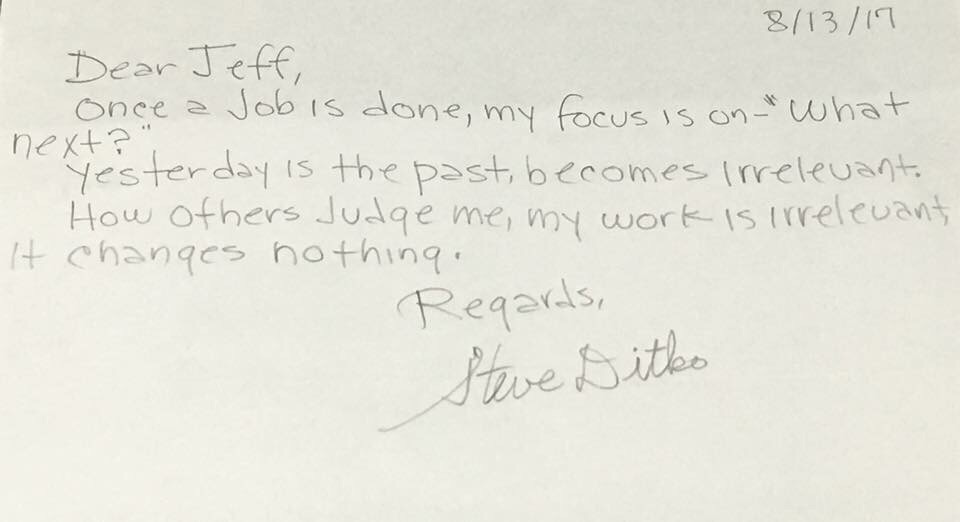 8/13/17
Dear Jeff,
Once a Job is done, my focus is on-"What
next?"
Yesterday is the past, becomes irrelevant.
How others Judge me, my work is irrelevant,
It changes nothing.
Regards,
Steve Ditko